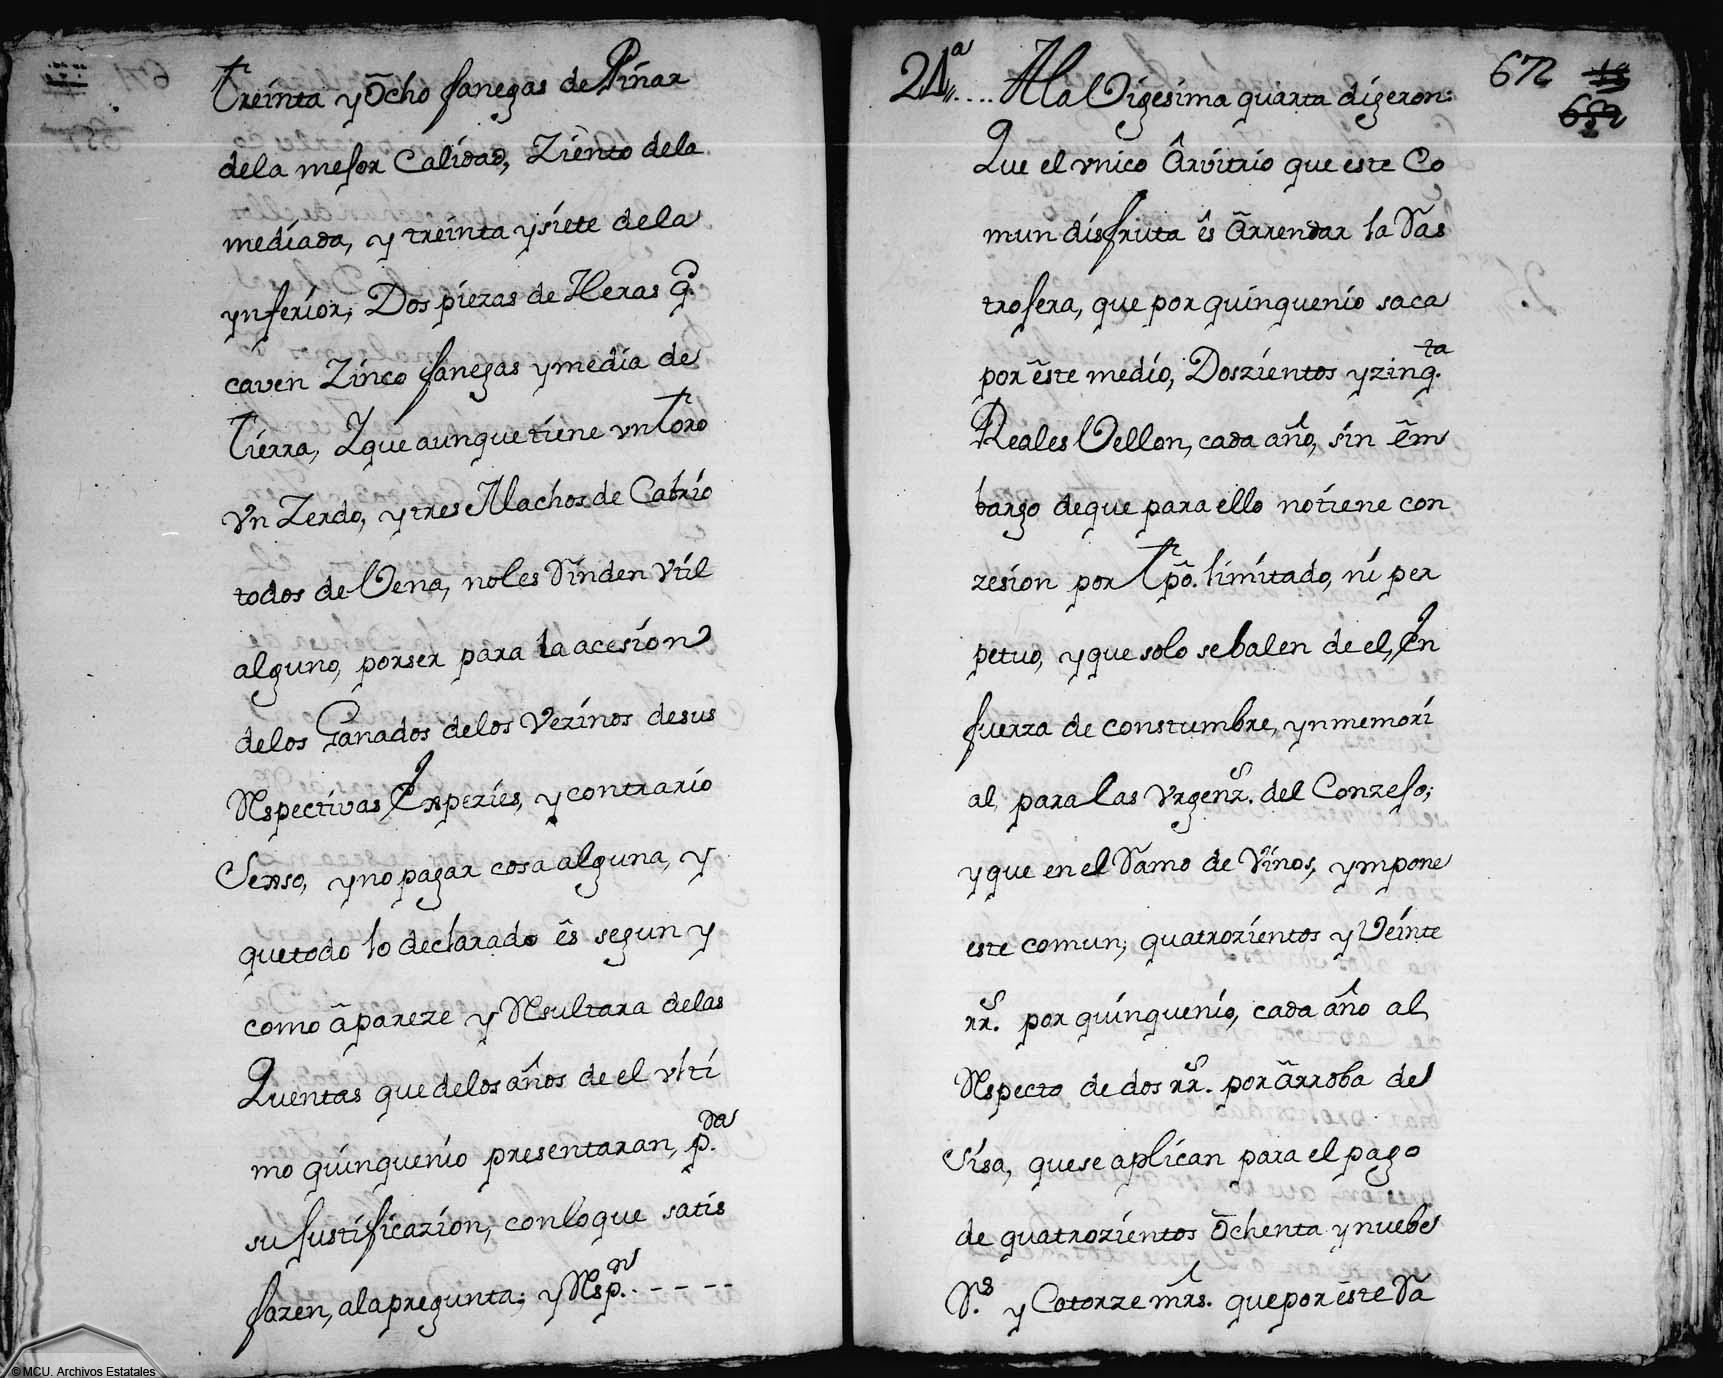 treinta y Ôcho fanegas de Piñar
dela mejor Calidad, Ziento dela
mediada, y treinta y siete dela
ynferior; Dos piezas de Heras q.e
caven Zinco fanegas y media de
tierra, Yque aunque tiene vn toro
vn Zerdo, y tres Machos de Cabrio
todos de Vena, noles Rinden vtil
alguno, porser para la acesion
delos Ganados delos Vezinos desus
Respectivas Expezies, y contrario
Sexso, yno pagar cosa alguna, y
quetodo lo declarado ês segun y
como âpareze y Resultara delas
Quentas que delos años de el vlti
mo quinquenio presentaran, p.da
su justificazion, conloque satis
fazen, ala pregunta; y Resp.n - - - -
24ª.... Ala Vigesima quarta digeron:
Que el vnico Ârvitrio que êste Co
mun disfruta ês Ârrendar la Ras
trojera, que por quinquenio saca
por êste medio, Doszientos y zinq.ta
Reales Vellon, cada año, sin êm
bargo deque para ello no tiene con
zesion por tpô. limitado, ni per
petuo, y que solo se balen de el, En
fuerza de constumbre, ynmemori
al, para las vrgenz.s del Conzejo;
y que en el Ramo de Vinos, ympone
este comun; quatrozientos y Veinte
rr.s por quinquenio, cada año al
Respecto de dos rr.s por ârroba de
Sisa, quese aplican para el pago
de quatrozientos ôchenta y nuebe
R.s y Catorze mrs. que por êste Ra
672
652
© MCU. Archivos Estatales